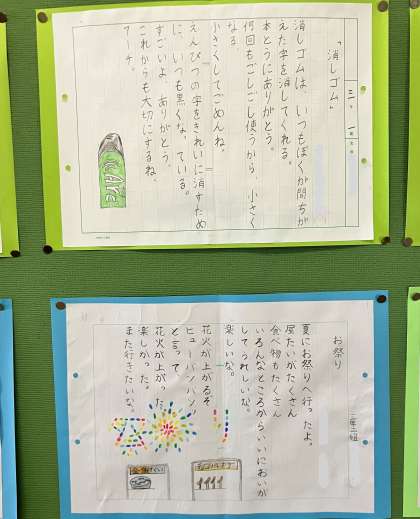 「消しゴム」
三の一
消しゴムは、いつもぼくが間ちが
えた字を消してくれる。
本とうにありがとう。
何回もごしごし使うから、小さく
なる
小さくしてごめんね。
えんぴつの字をきれいに消すため
に、いつも黒くなっている。
すごいよ、ありがとう。
これからも大切にするね。
お祭り
三年二組
夏にお祭りへ行ったよ。
屋たいがたくさん
食べ物もたくさん
いろんなところからいいにおいが
してうれしいな。
楽しいな。
花火が上がるぞ
ヒューバンバン
と言って
花火が上がった。
楽しかった。
また行きたいな。